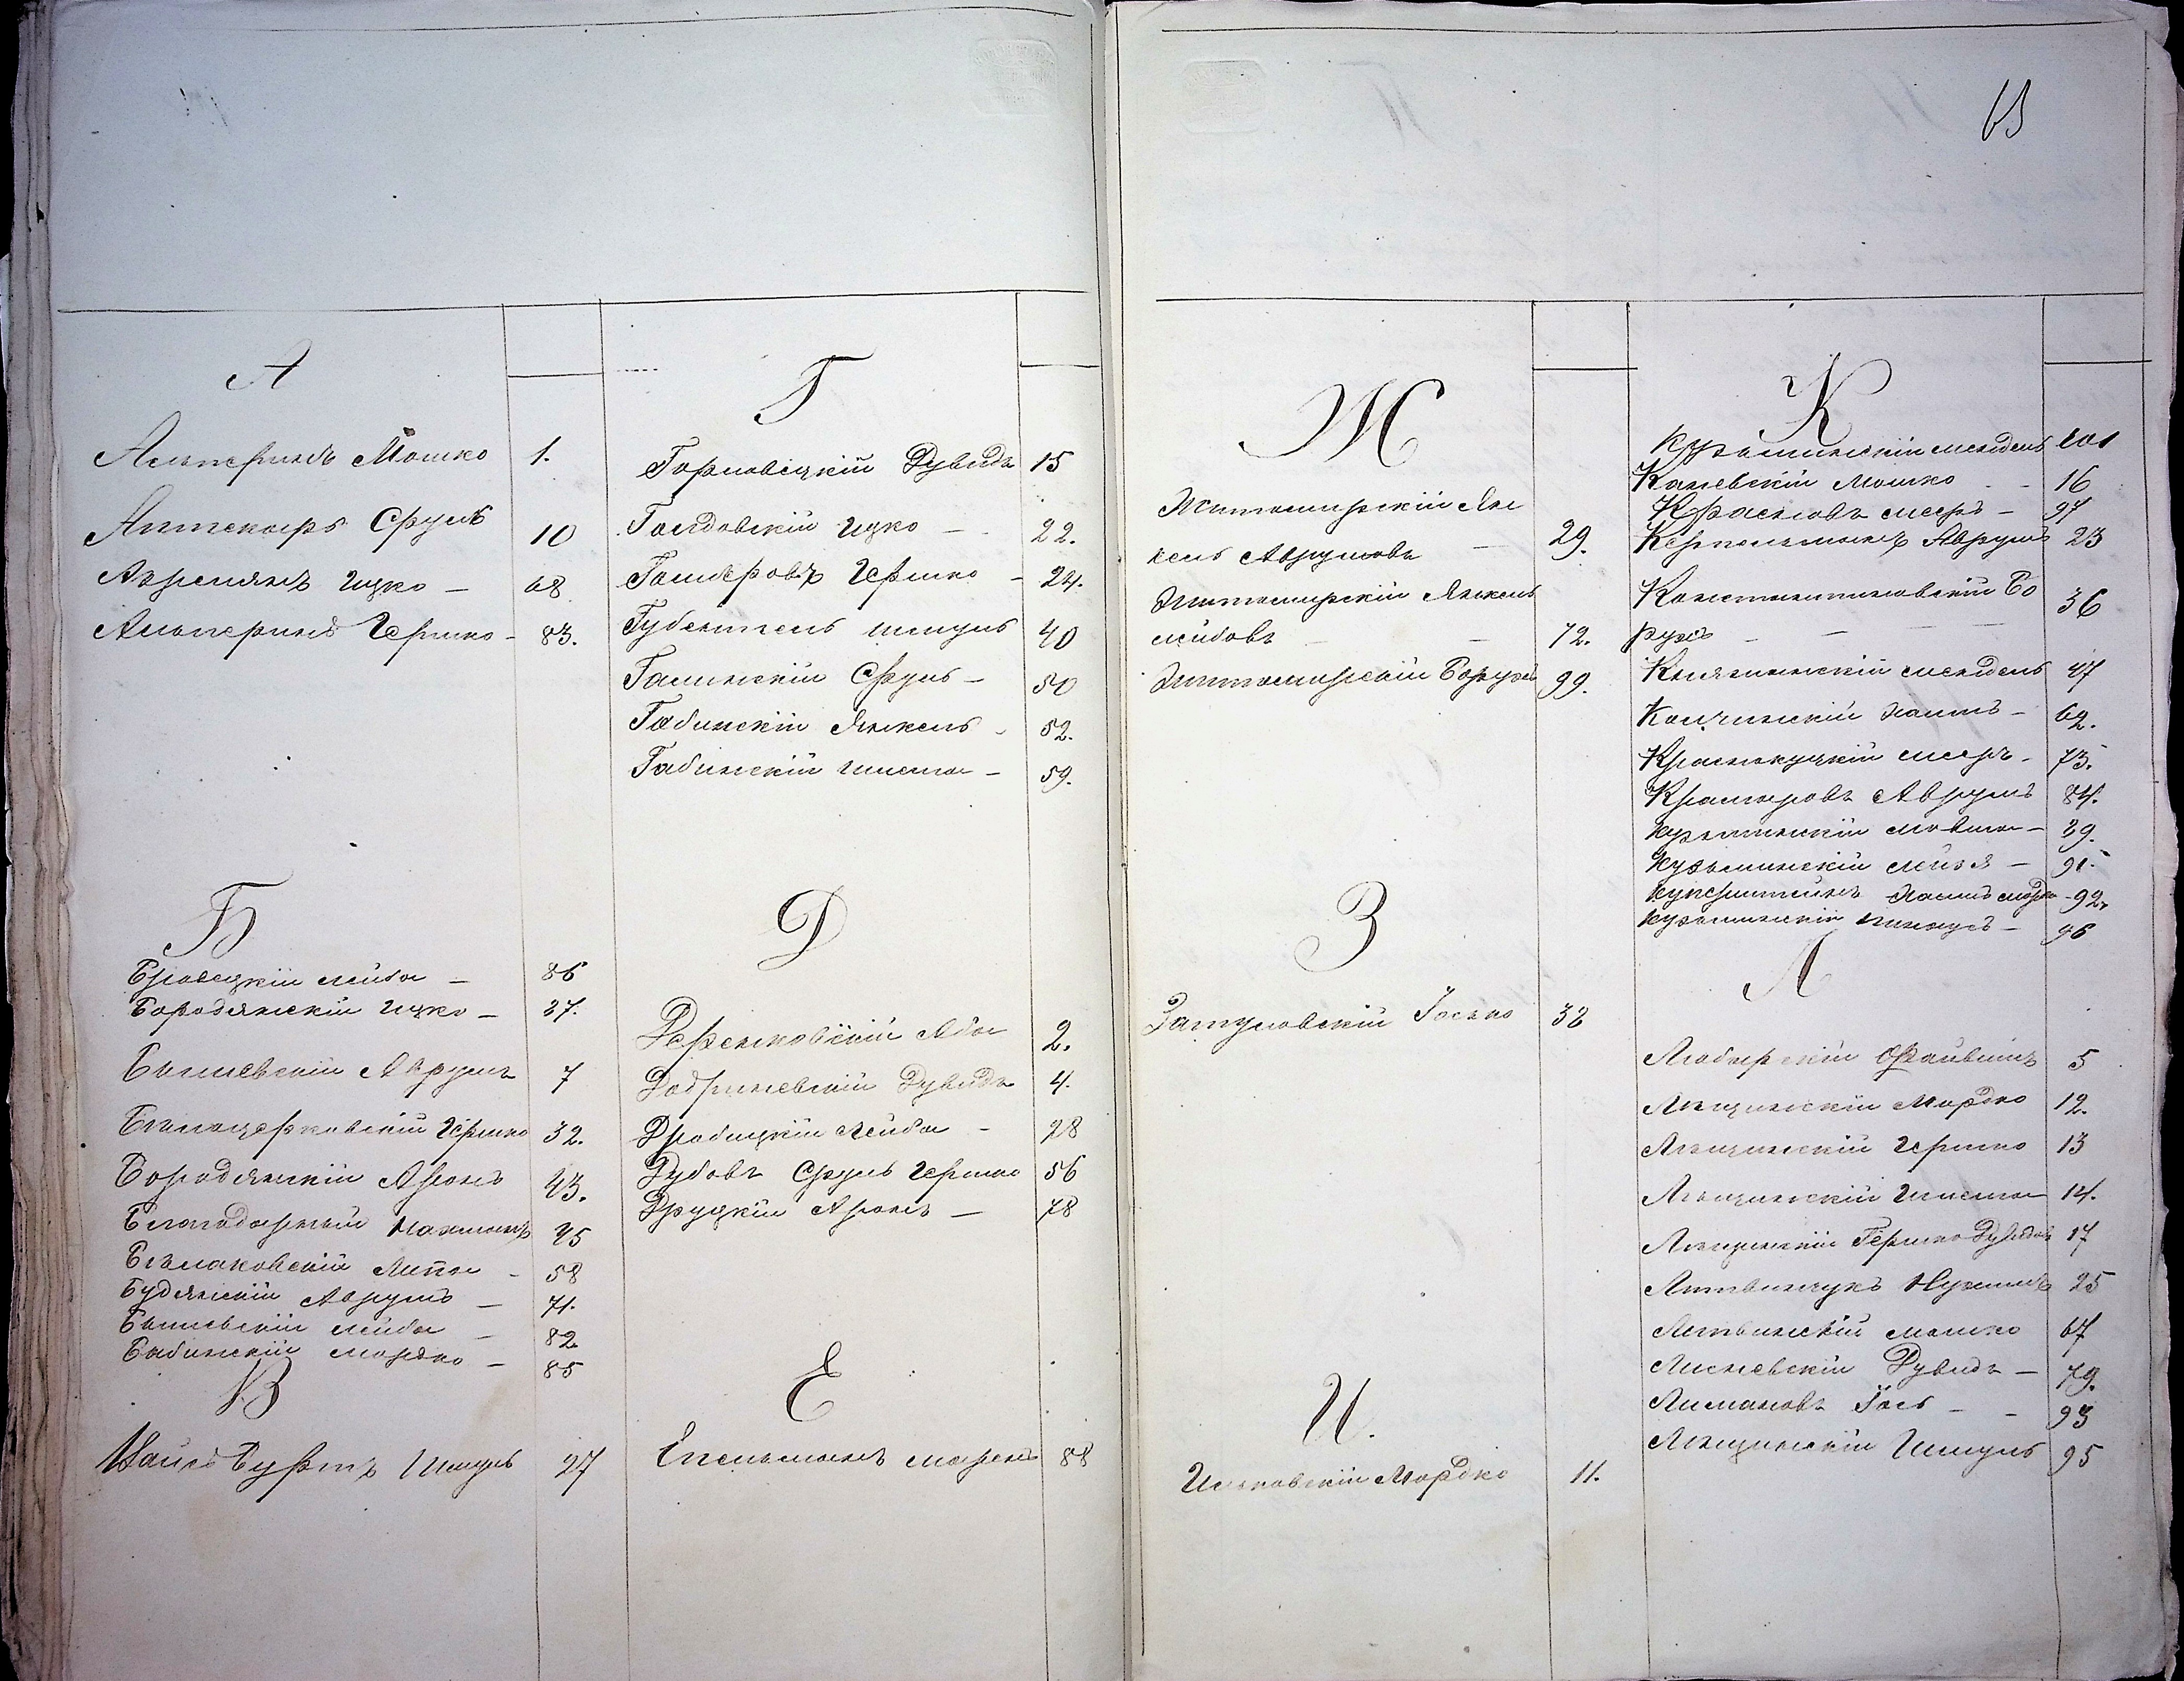 63
А
Альперинъ Мошко 1.
Аптекарь Сруль 10
Авремянъ Ицко — 68
Альперинъ Гершко - 83.
Б
Бровецкій Лейба — 86
Бородянскій Ицко — 37.
Бышевскій Аврумъ 7
Бѣлоцерковскій Гершко 32.
Бородянскій Аронъ 43.
Благодарный Нахманъ 45
Бѣлаковскій Липа - 58
Будянскій Аврумъ — 71.
Бышевскій Лейба — 82
Бабинскій Мордко — 85
В
Вайсбуртъ Шмуль 27
Г
Горновецкій Дувидъ 15
Голдовскій Ицко — 22.
Гомеровъ Гершко - 24.
Губенитель Шмуль 40
Галинскій Сруль — 50
Габинскій Янкель - 52.
Габинскій Шлема — 59.
Д
Деренковскій Аба 2.
Добриневскій Дувидъ 4.
Дробицкій Лейба - 28
Дубовъ Сруль Гершко 56
Друцкій Аронъ — 78
Е
Епельманъ 88
Ж
Житомирскій Ян
кель Аврумовъ — 29.
Житомирскій Янкель
Лейбовъ — — 72.
Житомирскій Борухъ 99.
З
Затуловскій Іосько 38
И.
Ильковскій Мордко 11.
К
Кузьминскій Мендель 101
Каневскій Мошко - - 16
Красновъ Мееръ — 97
Керпельманъ Аврумъ 23
Константиновскій Бо
рухъ — — — 36
Княгининскій Мендель 47
Копчинскій Хаимъ — 62.
Краснокуцкій Мееръ - 73.
Крамаровъ Аврумъ 84.
Кузьминскій Мовша — 89.
Кузьминскій — 91.
Куперштейнъ Хаимъ - 92.
Кузьминскій Пинхусъ — 96
Л
Любарскій Файвишъ 5
Лещинскій Мордко 12.
Лещинскій Гершко 13
Лещинскій Шлема 14.
Лещинскій Гершко Дувидовъ 17
Литвинчукъ Нухимъ 25
Литвинскій Мошко 67
Лисневскій Дувидъ — 79.
Лимановъ Іось - - 93
Лещинскій Шмуль 95